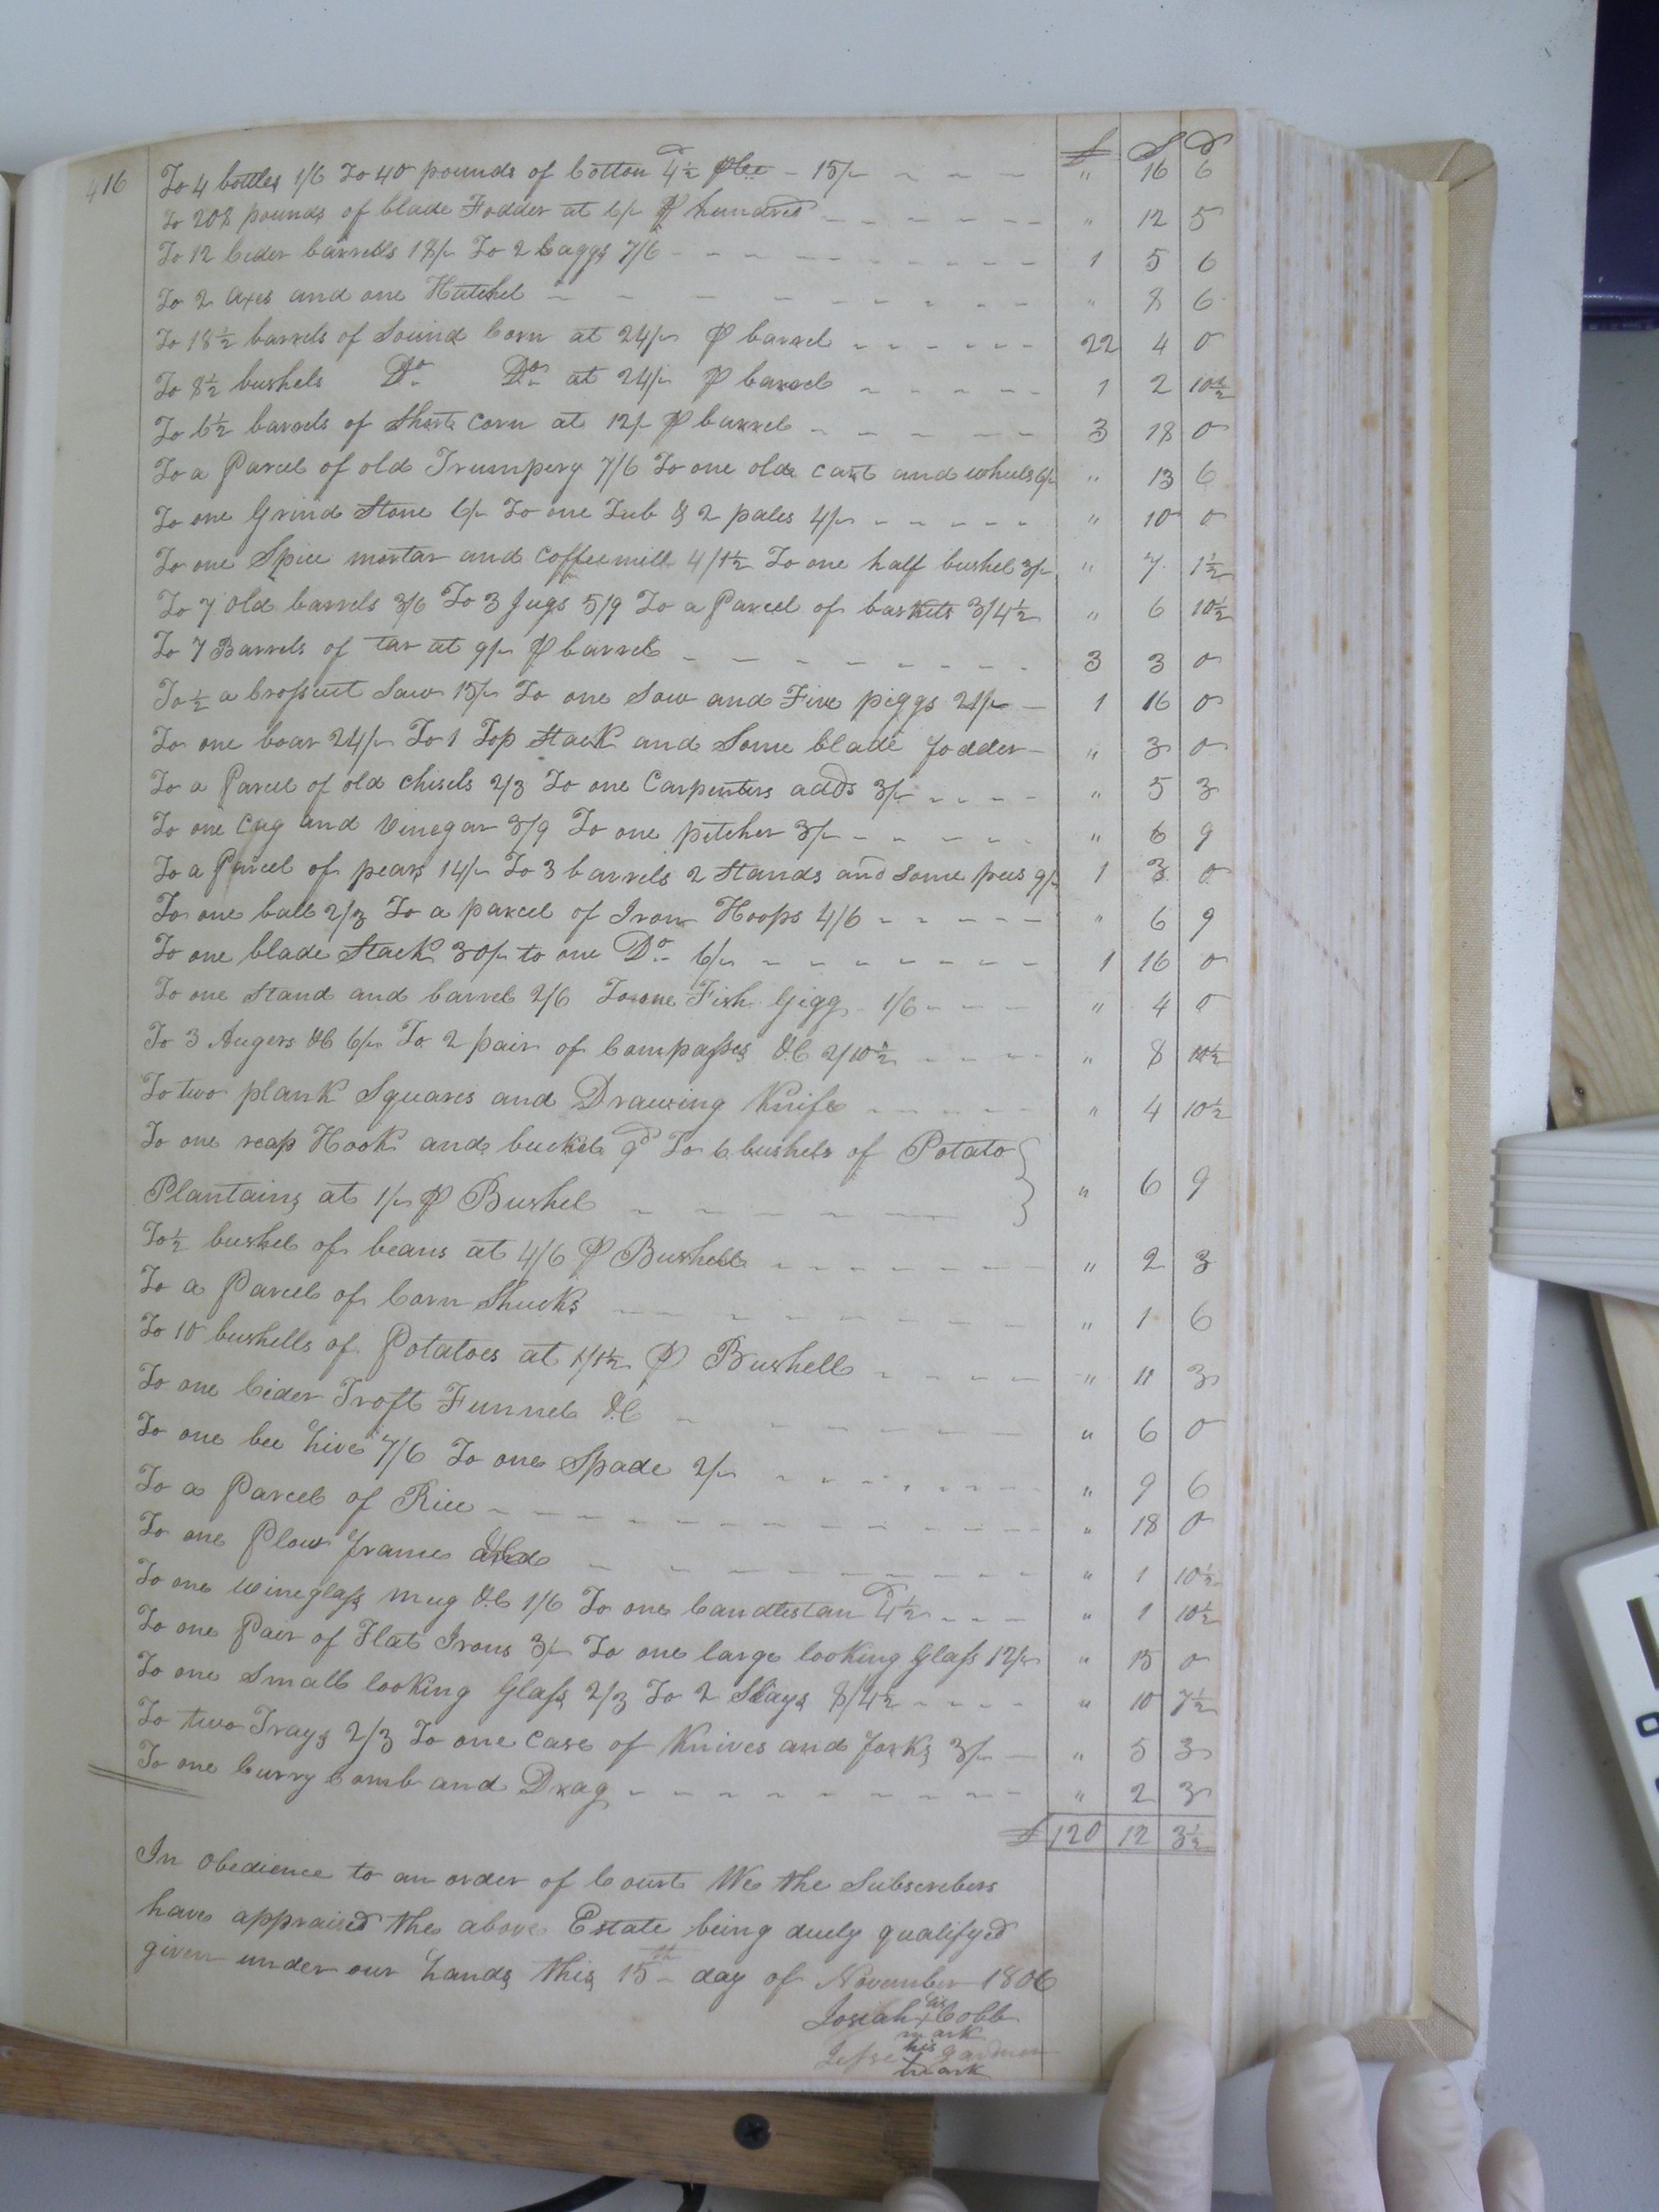 £ S D
416 To 4 bottles 1/6 To 40 pounds of Cotton 4½ d 15/- " 16 6
To 208 pounds of blade Fodder at 6/- ⅌ hundred " 12 5
To 12 Cider barrells 18/- To 2 Caggs 7/6 1 5 6
To 2 axes and one Hatchel " 8 6
To 18½ barrels of Sound Corn at 24/- ⅌ barrel 22 4 0
To 8½ bushels Do. Do. at 24/- ⅌ barrel 1 2 10½
To 6½ barrels of Short Corn at 12/- ⅌ barrel 3 18 0
To a Parcel of old Trumpery 7/6 To one old cart and wheels 6/- " 13 6
To one Grind Stone 6/- To one Tub & 2 pales 4/- " 10 0
To one Spice mortar and Coffee mill 4/1½ To one half bushel 3/- " 7 1½
To 7 old barrels 3/6 To 3 Jugs 5/9 To a Parcel of baskets 3/4½ " 6 10½
To 7 Barrels of tar at 9/- ⅌ barrel 3 3 0
To ½ a Crosscut Saw 15/- To one Sow and Five piggs 21/- 1 16 0
To one boar 24/- To 1 Top Stack and Some blade fodder " 3 0
To a Parcel of old chisels 2/3 To one Carpenters adds 3/- " 5 3
To one Cag and Vinegar 3/9 To one pitcher 3/- " 6 9
To a Parcel of peas 14/- To 3 barrels 2 Stands and Some pees 9/- 1 3 0
To one ball 2/3 To a parcel of Iron Hoops 4/6 " 6 9
To one blade Stack 30/- to one Do. 6/- 1 16 0
To one Stand and barrel 2/6 To one Fish Gigg 1/6 " 4 0
To 3 Augers &C 6/- To 2 pair of Compasses &C 2/10½ " 8 10½
To two plank Squares and Drawing Knife " 4 10½
To one reap Hook and buckel 9d To 6 bushels of Potato
Plantains at 1/- ⅌ Bushel " 6 9
To ½ bushel of beans at 4/6 ⅌ Bushell " 2 3
To a Parcel of Corn Shucks " 1 6
To 10 bushells of Potatoes at 1/1½ ⅌ Bushell " 11 3
To one Cider Troft Funnel &C " 6 0
To one bee hive 7/6 To one Spade 2/- " 9 6
To a Parcel of Rice " 18 0
To one Plow frame &C " 1 10½
To one wineglass mug &C 1/6 To one Candlestan 4½ d " 1 10½
To one Pair of Flat Irons 3/- To one large looking Glass 12/- " 15 0
To one Small looking Glass 2/3 To 2 Slays 8/4½ " 10 7½
To two Trays 2/3 To one Case of Knives and forks 3/- " 5 3
To one Curry Comb and Drag " 2 3
£ 120 12 3½
In obedience to an order of Court We the Subscribers
have appraised the above Estate being duely qualifyed
given under our hands this 15th day of November 1806
his
Josiah + Cobb
mark
his
Jesse Gardner
mark